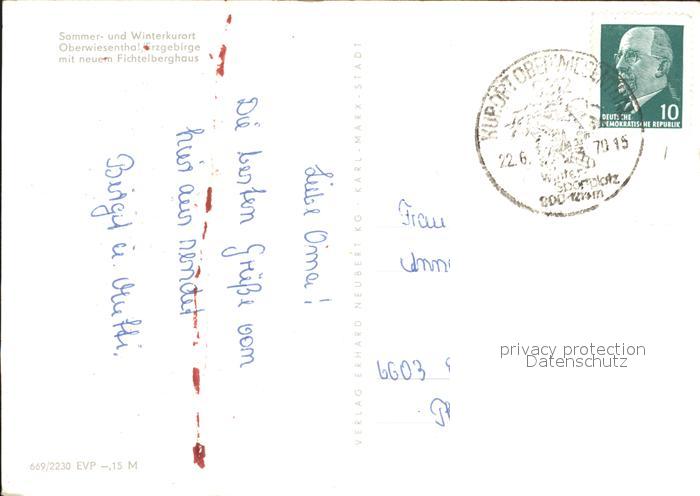 Sommer- und Winterkurort
Oberwiesenthal/Erzgebirge
mit neuem Fichtelberghaus
Liebe Oma!
Die besten Grüße vom
hier aus sendet
Birgit u. Mutti.
VERLAG ERHARD NEUBERT KG · KARL-MARX-STADT
669/2230 EVP –,15 M
10
DEUTSCHE
DEMOKRATISCHE REPUBLIK
KURORT OBERWIESENTHAL
22.6. 70 15
Winter-
sportplatz
Frau
6603
privacy protection
Datenschutz